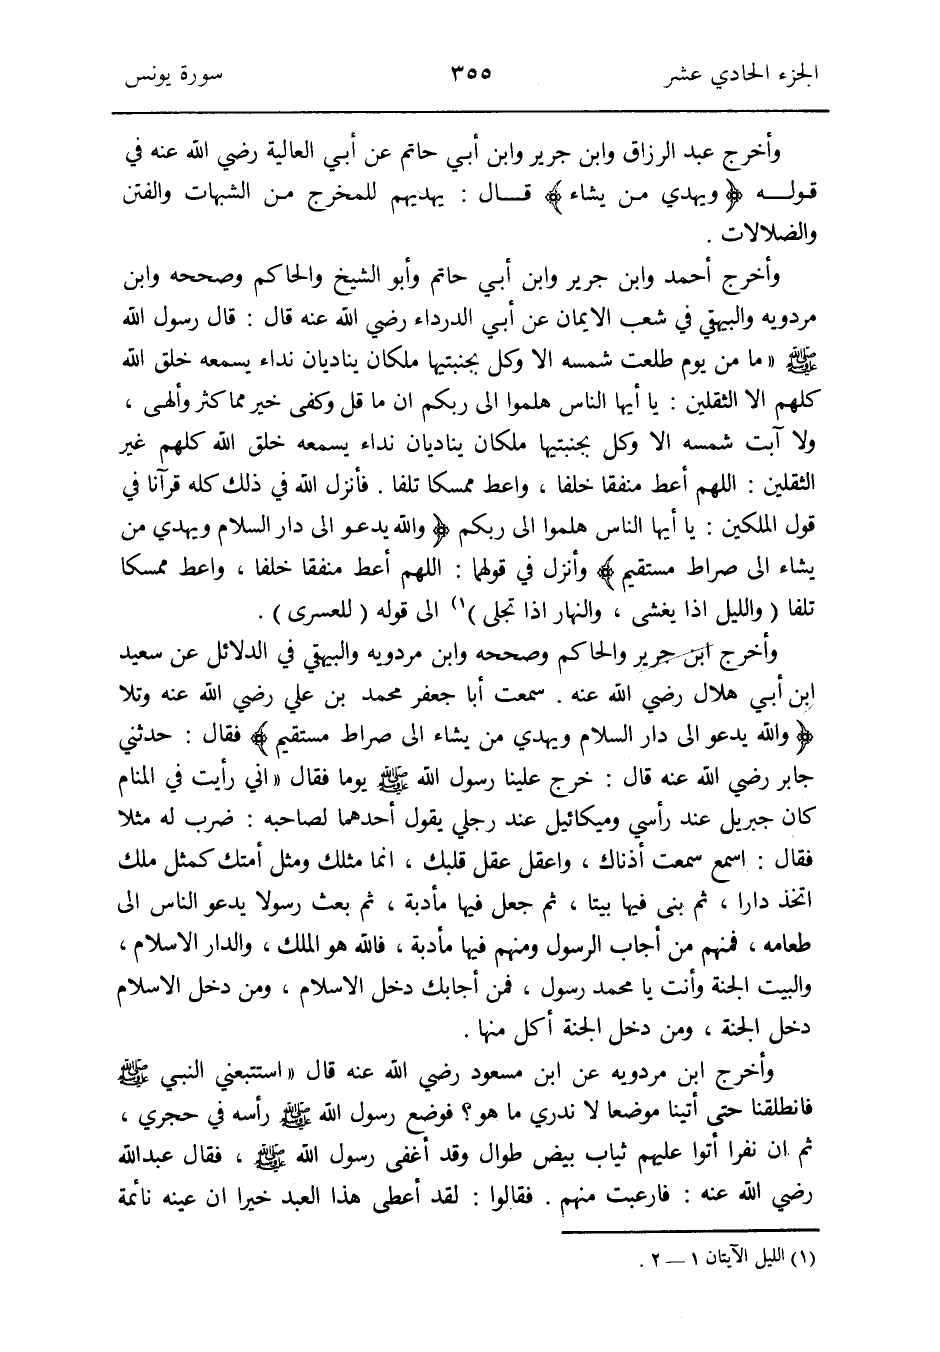 الجزء الحادي عشر ٣٥٥ سورة يونس
وأخرج عبد الرزاق وابن جرير وابن أبي حاتم عن أبي العالية رضي الله عنه في
قولـــه ﴿ ويهدي من يشاء ﴾ قـــال : يهديهم للمخرج من الشبهات والفتن
والضلالات .
وأخرج أحمد وابن جرير وابن أبي حاتم وأبو الشيخ والحاكم وصححه وابن
مردويه والبيهقي في شعب الايمان عن أبي الدرداء رضي الله عنه قال : قال رسول الله
ﷺ « ما من يوم طلعت شمسه الا وكل بجنبتيها ملكان يناديان نداء يسمعه خلق الله
كلهم الا الثقلين : يا أيها الناس هلموا الى ربكم ان ما قل وكفى خير مما كثر وألهى ،
ولا آبت شمسه الا وكل بجنبتيها ملكان يناديان نداء يسمعه خلق الله كلهم غير
الثقلين : اللهم أعط منفقا خلفا ، واعط ممسكا تلفا . فأنزل الله في ذلك كله قرآنا في
قول الملكين : يا أيها الناس هلموا الى ربكم ﴿ والله يدعو الى دار السلام ويهدي من
يشاء الى صراط مستقيم ﴾ وأنزل في قولهما : اللهم أعط منفقا خلفا ، واعط ممسكا
تلفا ( والليل اذا يغشى ، والنهار اذا تجلى )(١) الى قوله ( للعسرى ) .
وأخرج ابن جرير والحاكم وصححه وابن مردويه والبيهقي في الدلائل عن سعيد
ابن أبي هلال رضي الله عنه . سمعت أبا جعفر محمد بن علي رضي الله عنه وتلا
﴿ والله يدعو الى دار السلام ويهدي من يشاء الى صراط مستقيم ﴾ فقال : حدثني
جابر رضي الله عنه قال : خرج علينا رسول الله ﷺ يوما فقال « اني رأيت في المنام
كان جبريل عند رأسي وميكائيل عند رجلي يقول أحدهما لصاحبه : ضرب له مثلا
فقال : اسمع سمعت أذناك ، واعقل عقل قلبك ، انما مثلك ومثل أمتك كمثل ملك
اتخذ دارا ، ثم بنى فيها بيتا ، ثم جعل فيها مأدبة ، ثم بعث رسولا يدعو الناس الى
طعامه ، فمنهم من أجاب الرسول ومنهم فيها مأدبة ، فالله هو الملك ، والدار الاسلام ،
والبيت الجنة وأنت يا محمد رسول ، فمن أجابك دخل الاسلام ، ومن دخل الاسلام
دخل الجنة ، ومن دخل الجنة أكل منها .
وأخرج ابن مردويه عن ابن مسعود رضي الله عنه قال « استتبعني النبي ﷺ
فانطلقنا حتى أتينا موضعا لا ندري ما هو؟ فوضع رسول الله ﷺ رأسه في حجري ،
ثم ان نفرا أتوا عليهم ثياب بيض طوال وقد أغفى رسول الله ﷺ ، فقال عبدالله
رضي الله عنه : فارعبت منهم . فقالوا : لقد أعطى هذا العبد خيرا ان عينه نائمة
(١) الليل الآيتان ١ — ٢ .